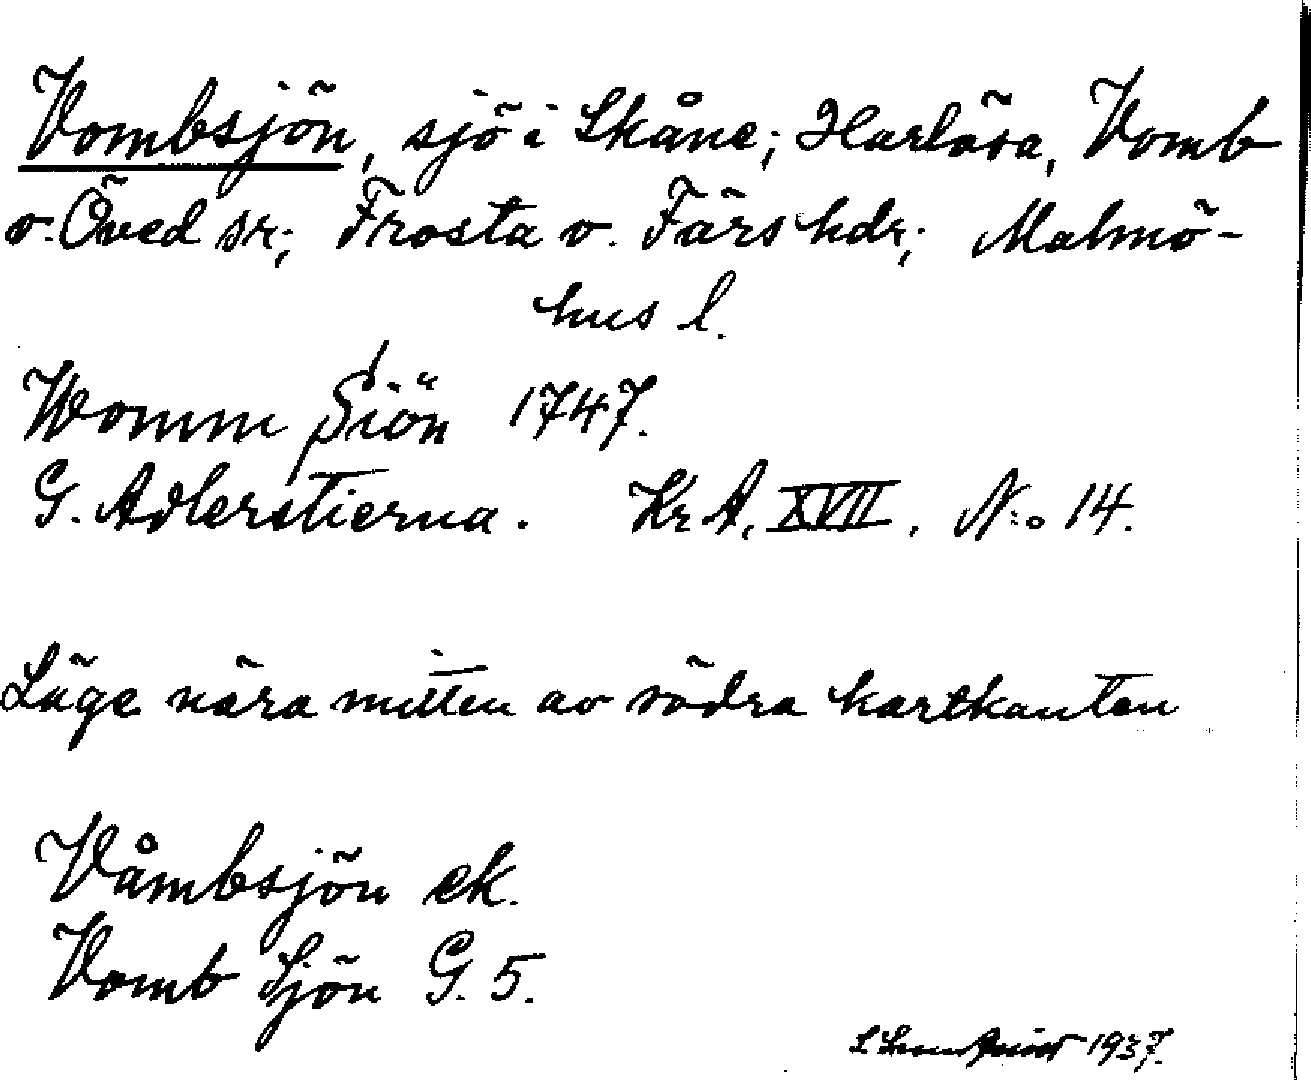 Vombsjön, sjö i Skåne; Harlösa, Vomb
o. Öved sr; Frosta o. Färs hdr; Malmö-
hus l.
Womm Siön 1747.
G. Adlerstierna. Kr A, XVII. N:o 14.
Läge nära mitten av södra kartkanten
Våmbsjön ek.
Vomb Sjön G. 5.
1937.